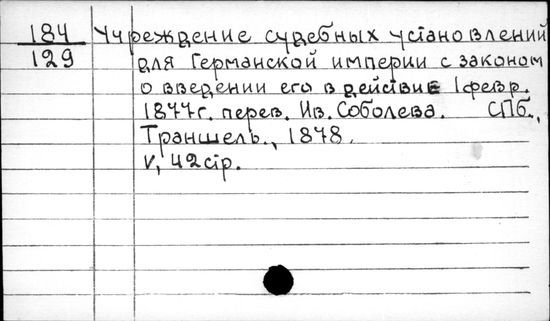 184
129
Учреждение судебных установлений
для Германской империи с законом
о введении его в действие 1 февр.
1877 г. перев. Ив. Соболева. СПб.,
Траншель., 1878.
V, 42 стр.